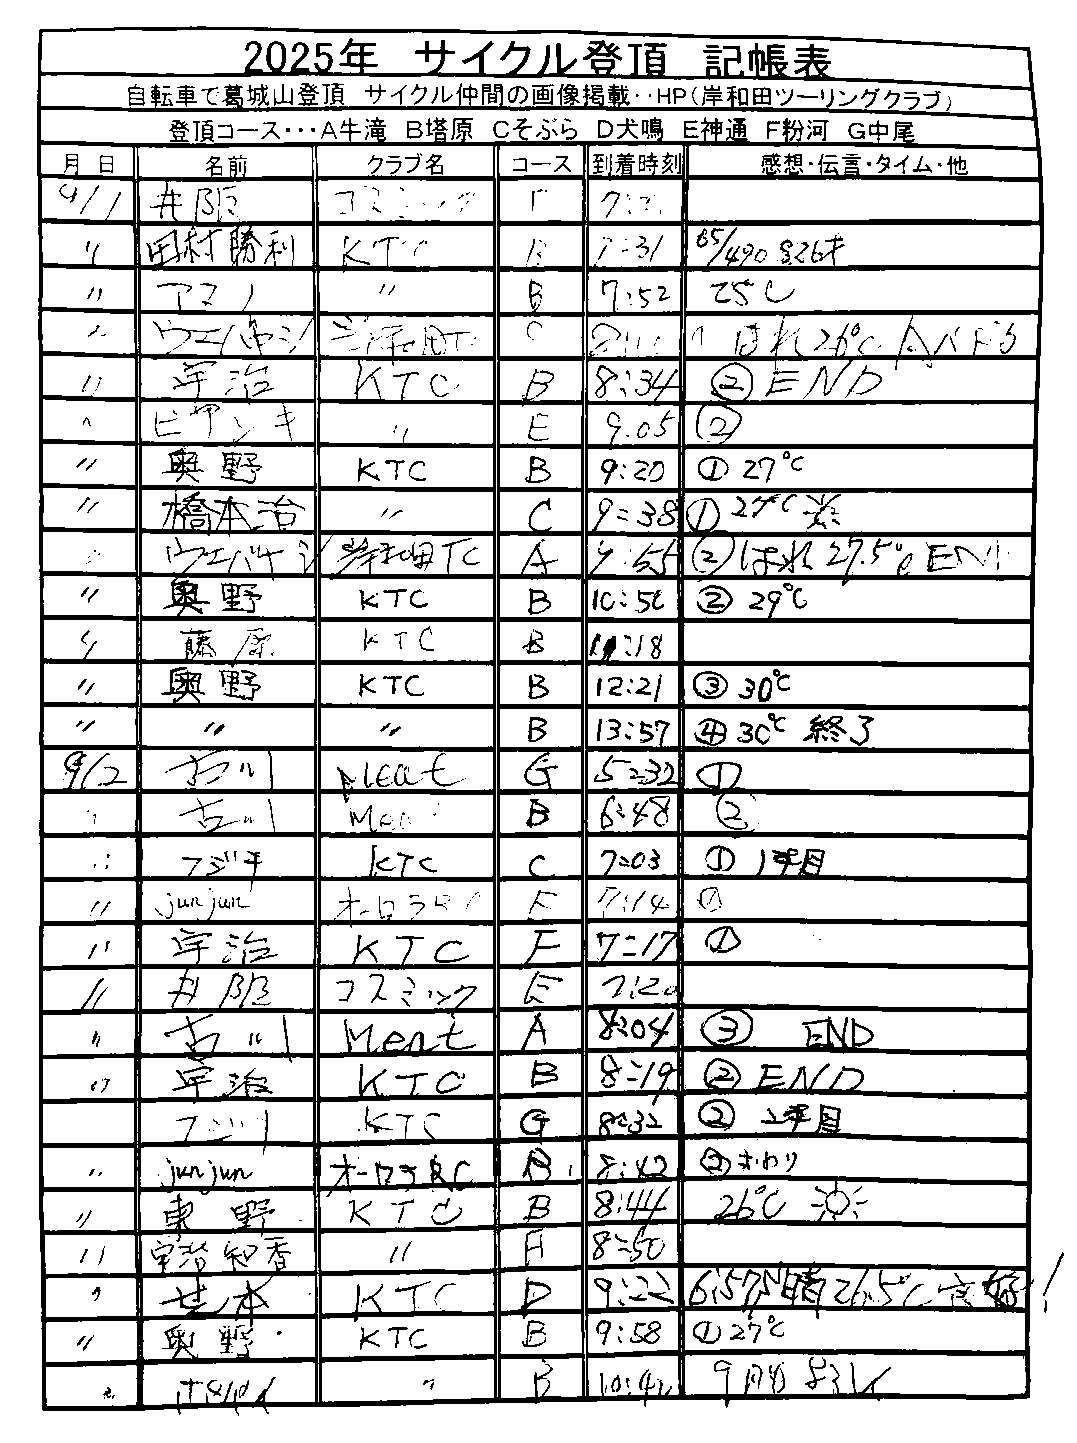 2025年 サイクル登頂 記帳表
自転車で葛城山登頂 サイクル仲間の画像掲載‥HP(岸和田ツーリングクラブ)
登頂コース･･･A牛滝 B塔原 Cそぶら D犬鳴 E神通 F粉河 G中尾
月 日 名前 クラブ名 コース 到着時刻 感想･伝言･タイム･他
9/1 井阪 コスミック
〃 田村勝利 KTC 7:31 65/490
〃 アマノ 〃 B 7:52 25℃
〃 ウエバヤシ 岸和田TC C はれ 26℃
〃 宇治 KTC B 8:34 ② END
〃 ビアンキ 〃 E 9.05 ②
〃 奥野 KTC B 9:20 ① 27℃
〃 橋本治 〃 C 9:38 ① 27℃
〃 ウエバヤシ 岸和田TC A 9:55 ② はれ 27.5℃ END
〃 奥野 KTC B 10:50 ② 29℃
〃 藤原 KTC B 11:18
〃 奥野 KTC B 12:21 ③ 30℃
〃 〃 〃 B 13:57 ④ 30℃ 終了
9/2 古川 Meat G 5:32 ①
古川 Meat B 6:48 ②
〃 フジキ KTC C 7:03 ① 1本目
〃 junjun オーロラRC 7:14 ①
〃 宇治 KTC F 7:17 ①
〃 井阪 コスミック E 7:20
〃 古川 Meat A 8:04 ③ END
〃 宇治 KTC B 8:19 ② END
KTC G 8:32 ② 2本目
〃 junjun オーロラRC B 8:42 ② おわり
〃 東野 KTC B 8:44 26℃
〃 宇治知香 〃 A 8:50
〃 KTC D 9:22 晴 26.5℃
〃 奥野 KTC B 9:58 ① 27℃
〃 〃 B